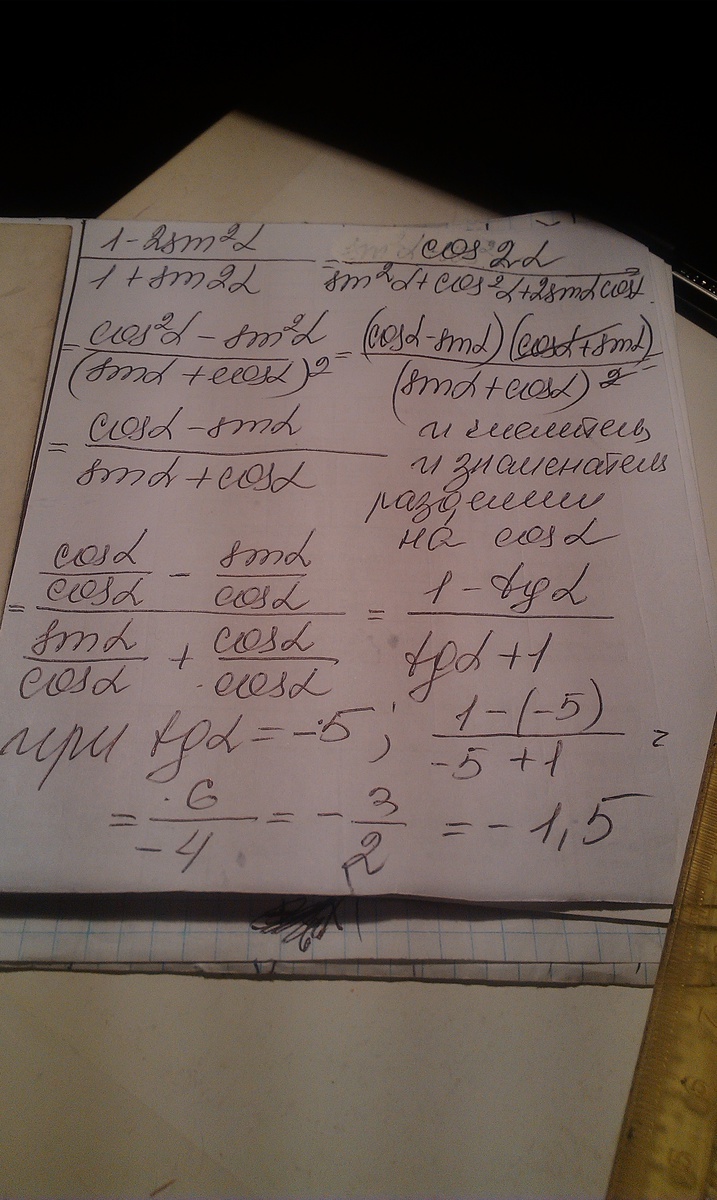 1-2sin²α / 1+sin2α = cos2α / sin²α+cos²α+2sinαcosα =
= cos²α-sin²α / (sinα+cosα)² = (cosα-sinα)(cosα+sinα) / (sinα+cosα)² =
= cosα-sinα / sinα+cosα
и числитель
и знаменатель
разделим
на cosα
= cosα/cosα - sinα/cosα / sinα/cosα + cosα/cosα = 1-tgα / tgα+1
при tgα=-5; 1-(-5) / -5+1 =
= 6/-4 = -3/2 = -1,5